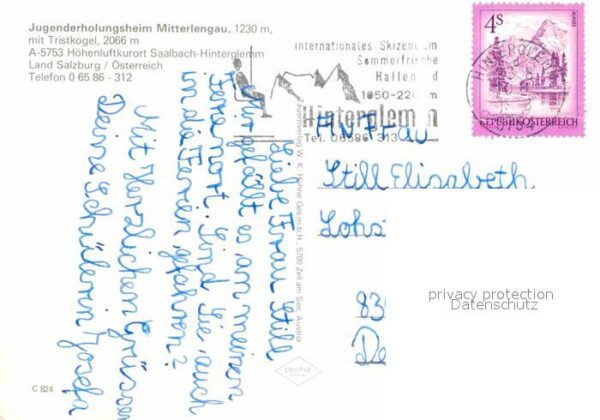 Jugenderholungsheim Mitterlengau, 1230 m,
mit Tristkogel, 2066 m
A-5753 Höhenluftkurort Saalbach-Hinterglemm
Land Salzburg / Österreich
Telefon 0 65 86 - 312
Internationales Skizen
Sommerfrische
Hallen
Hinterglem
Tel. 06586 313
4S
REPUBLIK ÖSTERREICH
HINTERGLE
5754
Liebe Frau Still
Mir gefällt es an meinem
Ferienort. Sind Sie auch
in die Ferien gefahren?
Mit Herzlichen Grüssen
Deine Schülerin Josefa
An Frau
Still Elisabeth
Lohs
830
De
privacy protection
Datenschutz
W. K. Hühne Ges.m.b.H., 5700 Zell am See, Austria
C 824